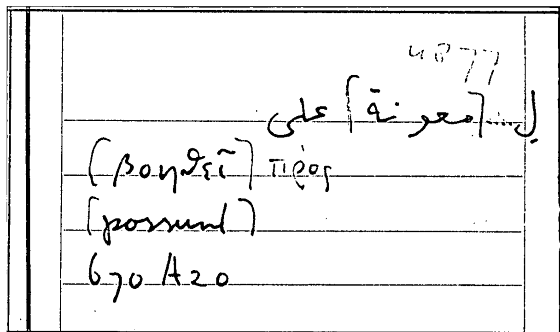 4877
ل [معونة] على
[βοηθεῖ] πρός
[possunt]
670 A20